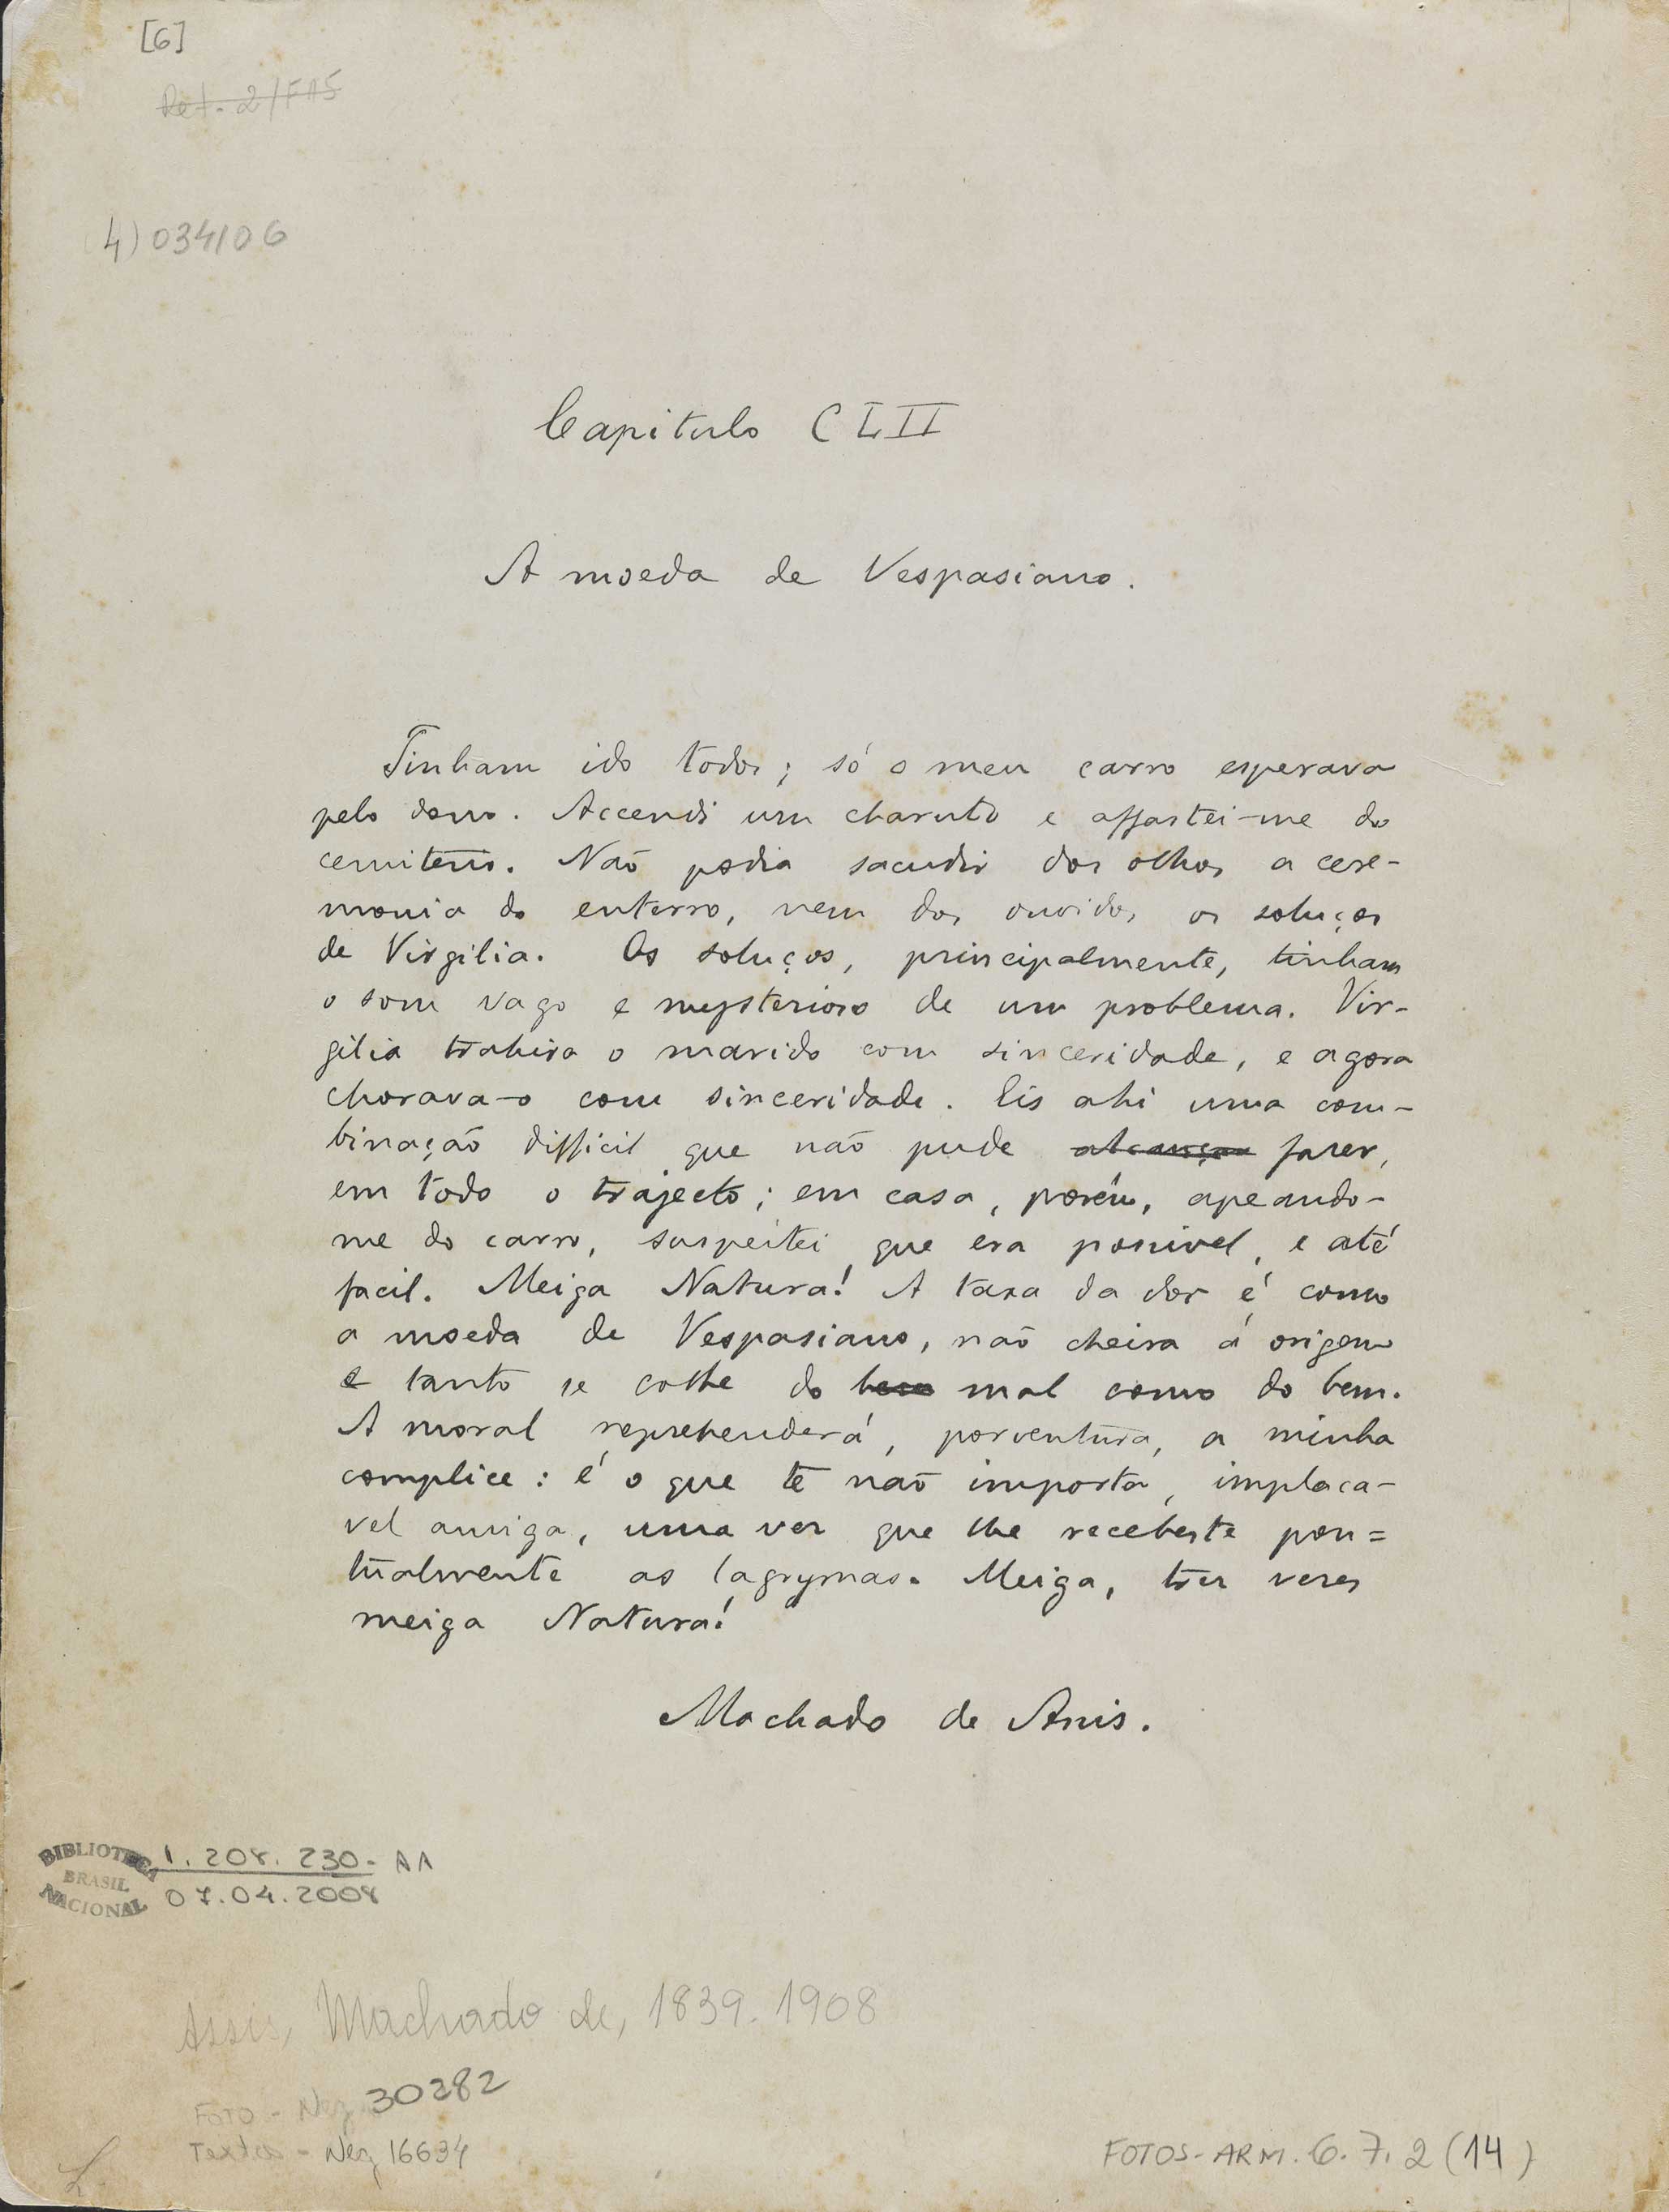 [6]
Ret. 2/FAS
4) 034106
Capitulo CLII
A moeda de Vespasiano.
Tinham ido todos; só o meu carro esperava
pelo dono. Accendi um charuto e affastei-me do
cemiterio. Não podia sacudir dos olhos a cere-
monia do enterro, nem dos ouvidos os soluços
de Virgilia. Os soluços, principalmente, tinham
o som vago e mysterioso de um problema. Vir-
gilia trahira o marido com sinceridade, e agora
chorava-o com sinceridade. Eis ahi uma com-
binação difficil que não pude fazer,
em todo o trajecto; em casa, porém, apeando-
me do carro, suspeitei que era possivel, e até
facil. Meiga Natura! A taxa da dor é como
a moeda de Vespasiano, não cheira á origem
e tanto se colhe do bem mal como do bem.
A moral reprehenderá, porventura, a minha
complice: é o que te não importa, implaca-
vel amiga, uma vez que lhe recebeste pon=
tualmente as lagrymas. Meiga, trez vezes
meiga Natura!
Machado de Assis.
BIBLIOTECA
BRASIL
NACIONAL
1.208.230-AA
07.04.2008
Assis, Machado de, 1839.1908
Foto - Neg 30282
Textos - Neg 16634
FOTOS-ARM. 6.7.2 (14)